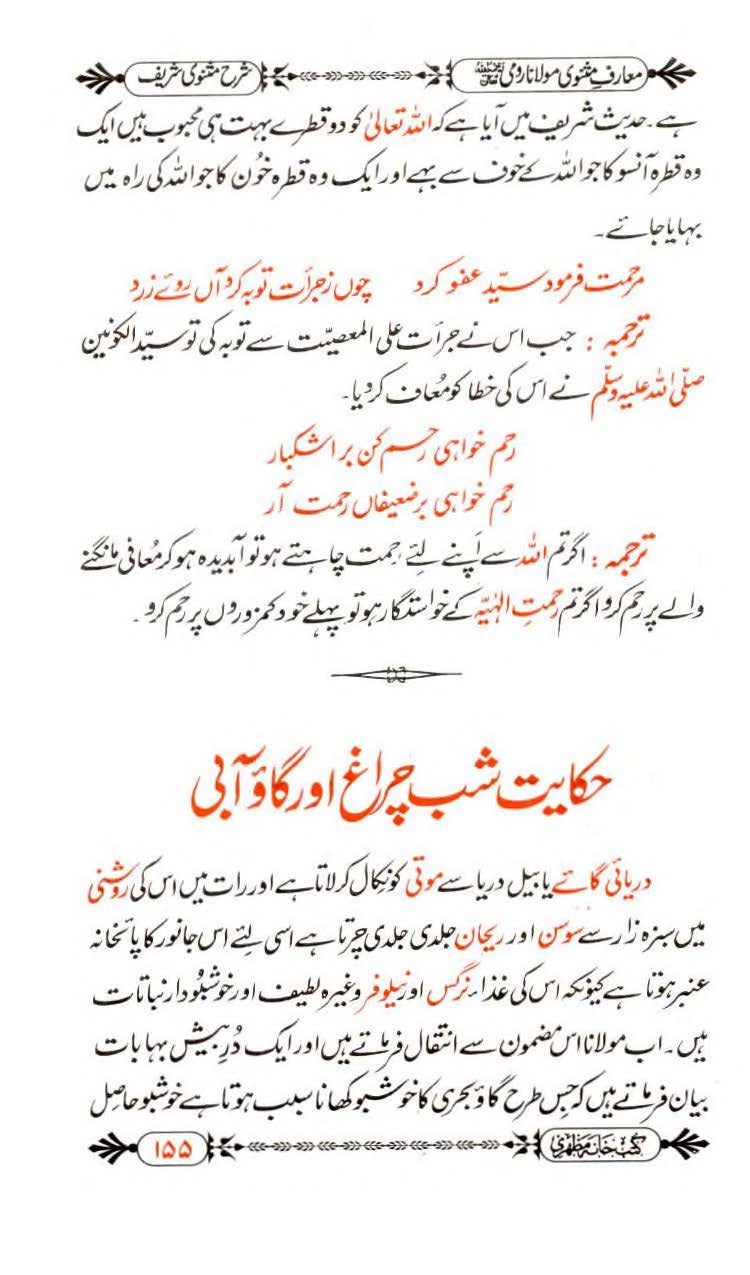 معارفِ مثنوی مولانا رومی رحمۃ اللہ علیہ
شرح مثنوی شریف
ہے۔ حدیث شریف میں آیا ہے کہ اللہ تعالیٰ کو دو قطرے بہت ہی محبوب ہیں ایک
وہ قطرہ آنسو کا جو اللہ کے خوف سے بہے اور ایک وہ قطرہ خُون کا جو اللہ کی راہ میں
بہایا جائے۔
مرحمت فرمود سیّد عفو کرد    چوں زجرأت توبہ کرد آں روئے زرد
ترجمہ : جب اس نے جرأت علی المعصیّت سے توبہ کی تو سیّد الکونین
صلّی اللہ علیہ وسلّم نے اس کی خطا کو مُعاف کر دیا۔
رحم خواہی رحم کن بر اشکبار
رحم خواہی بر ضعیفاں رحمت آر
ترجمہ : اگر تم اللہ سے اَپنے لئِے رحمت چاہتے ہو تو آبدیدہ ہو کر مُعافی مانگنے
والے پر رحم کرو اگر تم رحمتِ الہٰیّہ کے خواستگار ہو تو پہلے خود کمزوروں پر رحم کرو ۔
حکایت شب چراغ اور گاؤ آبی
دریائی گائے یا بیل دریا سے موتی کو نِکال کر لاتا ہے اور رات میں اس کی روشنی
میں سبزہ زار سے سوسن اور ریحان جلدی جلدی چرتا ہے اسی لئِے اس جانور کا پائخانہ
عنبر ہوتا ہے کیونکہ اس کی غذا نرگس اور نیلوفر وغیرہ لطیف اور خوشبُودار نباتات
ہیں ۔ اب مولانا اس مضمون سے انتقال فرماتے ہیں اور ایک دُرِ بیش بہا بات
بیان فرماتے ہیں کہ جس طرح گاؤ بحری کا خوشبو کھانا سبب ہوتا ہے خوشبو حاصِل
کتب خانہ مظہری
۱۵۵